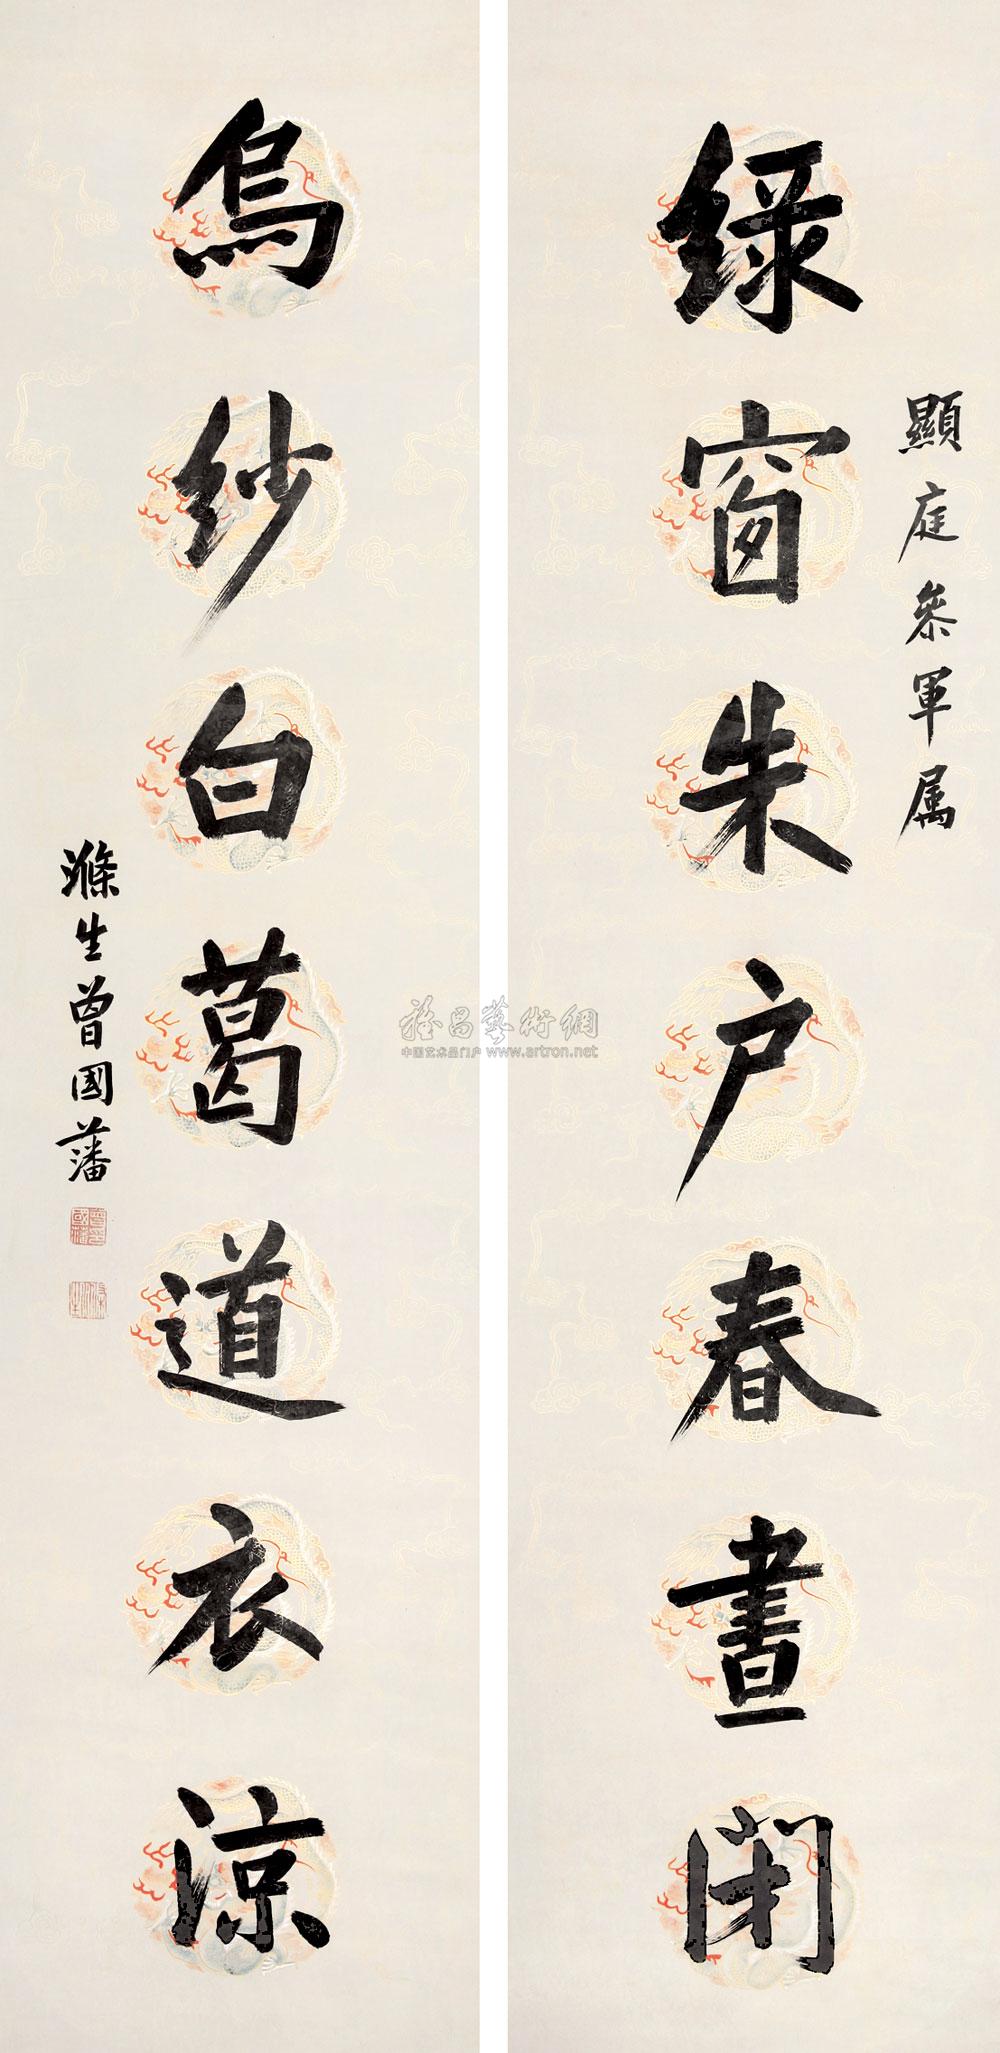 顯庭參軍属
绿窗朱户春晝閉
烏紗白葛道衣涼
滌生曾國藩
雅昌藝術網
中国艺术品门户 www.artron.net